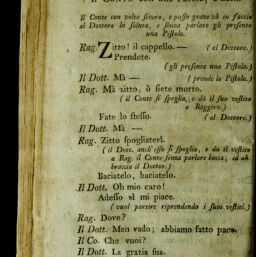 Il Conte con volto severo, e passo grave và in faccia
al Dottore lo saluta, e senza parlare gli presenta
una Pistola.
Rag. Zitto! il cappello. — (al Dottore.)
Prendete.
(gli presenta una Pistola.)
Il Dott. Mà — (prende la Pistola.)
Rag. Mà zitto, ò siete morto.
(il Conte si spoglia, e dà il suo vestito
a Raggiro.)
Fate lo stesso. (al Dottore.)
Il Dott. Mà —
Rag. Zitto spogliatevi.
(il Dott. anch'esso si spoglia, e dà il vestito
a Rag. il Conte senza parlare bacia, ed ab-
braccia il Dottor.)
Baciatelo, baciatelo.
Il Dott. Oh mio caro!
Adesso sì mi piace.
(vuol partire riprendendo i suoi vestiti.)
Rag. Dove?
Il Dott. Men vado; abbiamo fatto pace.
Il Co. Che vuoi?
Il Dott. La grazia sua.